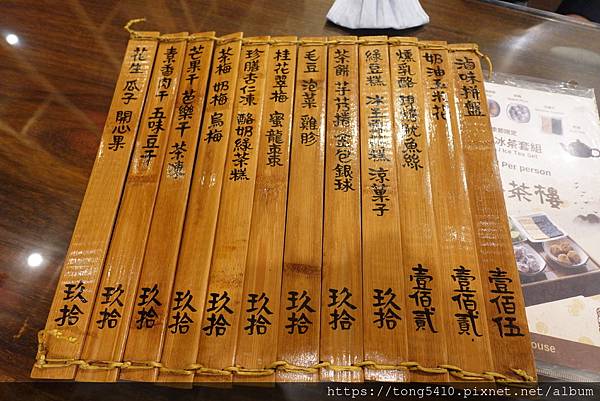 滷味拼盤 壹佰伍
奶油玉米花 壹佰貳
燻乳酪 魷魚絲 壹佰貳
綠豆糕 涼菓子 玖拾
茶餅 芋待捲 蛋包銀球 玖拾
毛豆 泡菜 雞胗 玖拾
桂花翠梅 蜜龍棗 玖拾
珍膳杏仁凍 酪奶綠茶糕 玖拾
茶梅 奶梅 烏梅 玖拾
芒果干 芭樂干 茶凍 玖拾
素香肉干 五味豆干 玖拾
花生 瓜子 開心果 玖拾
冰茶套組
Ice Tea Set
Per person
茶樓
ouse
https://tong5410.pixnet.net/album